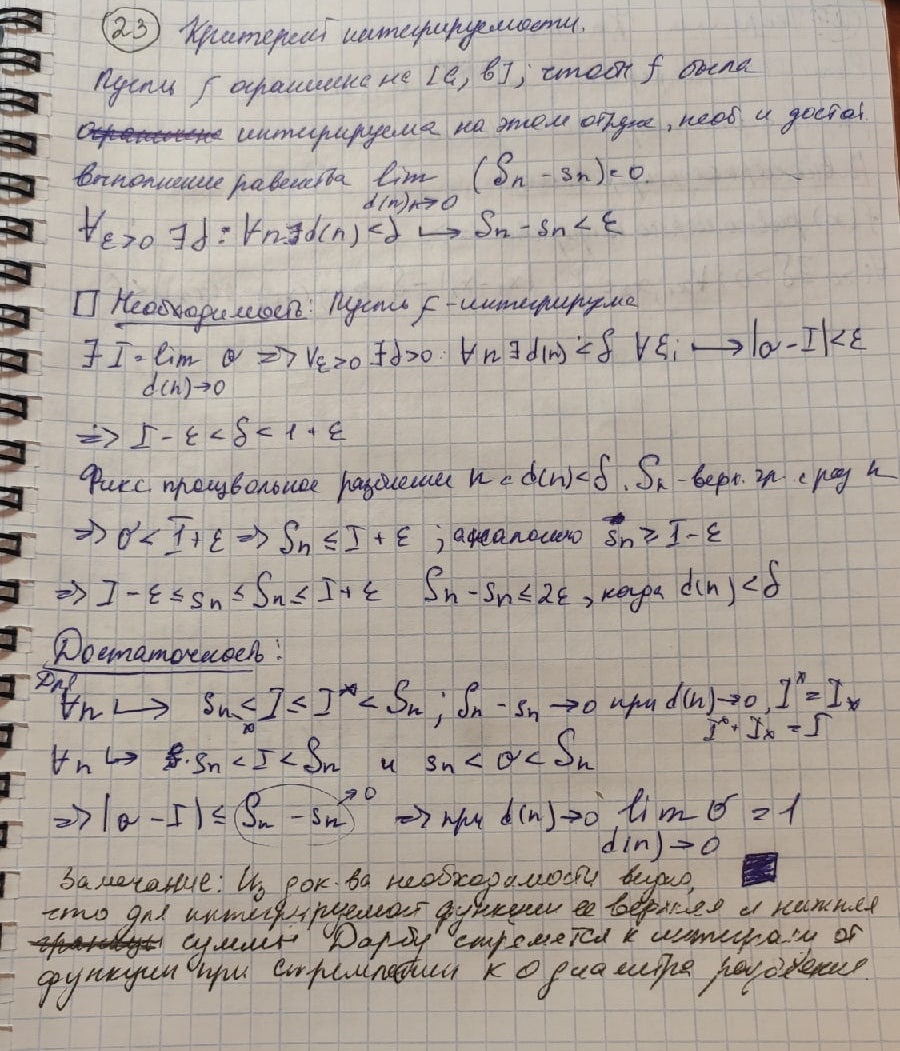 23 Критерий интегрируемости.
Пусть f ограничена на [a, b]; чтобы f была
ограничена интегрируема на этом отрезке, необ. и достат.
выполнение равенства lim (Sn - sn) = 0.
d(n)n→0
∀ε>0 ∃δ: ∀n∃d(n)<δ ↦ Sn - sn < ε
□ Необходимость: Пусть f - интегрируема
∃ I = lim σ => ∀ε>0 ∃δ>0: ∀n∃d(n)<δ ∀ξi ↦ |σ - I|<ε
d(n)→0
=> I - ε < δ < I + ε
Фикс. произвольное разбиение n с d(n)<δ. Sn - верх. гр. с раз n
=> σ < I + ε => Sn ≤ I + ε ; аналогично sn ≥ I - ε
=> I - ε ≤ sn ≤ Sn ≤ I + ε Sn - sn ≤ 2ε, когда d(n) < δ
Достаточность:
∀n ↦ sn < I* ≤ I* < Sn ; Sn - sn → 0 при d(n)→0, I* = I*
I* = I* = I
∀n ↦ sn < I < Sn и sn < σ < Sn
=> |σ - I| ≤ Sn - sn → 0 => при d(n)→0 lim σ = I
d(n)→0
Замечание: Из док-ва необходимости видно,
что для интегрируемой функции её верхняя и нижняя
границы суммы Дарбу стремятся к интегралу от
функции при стремлении к 0 диаметра разбиения.